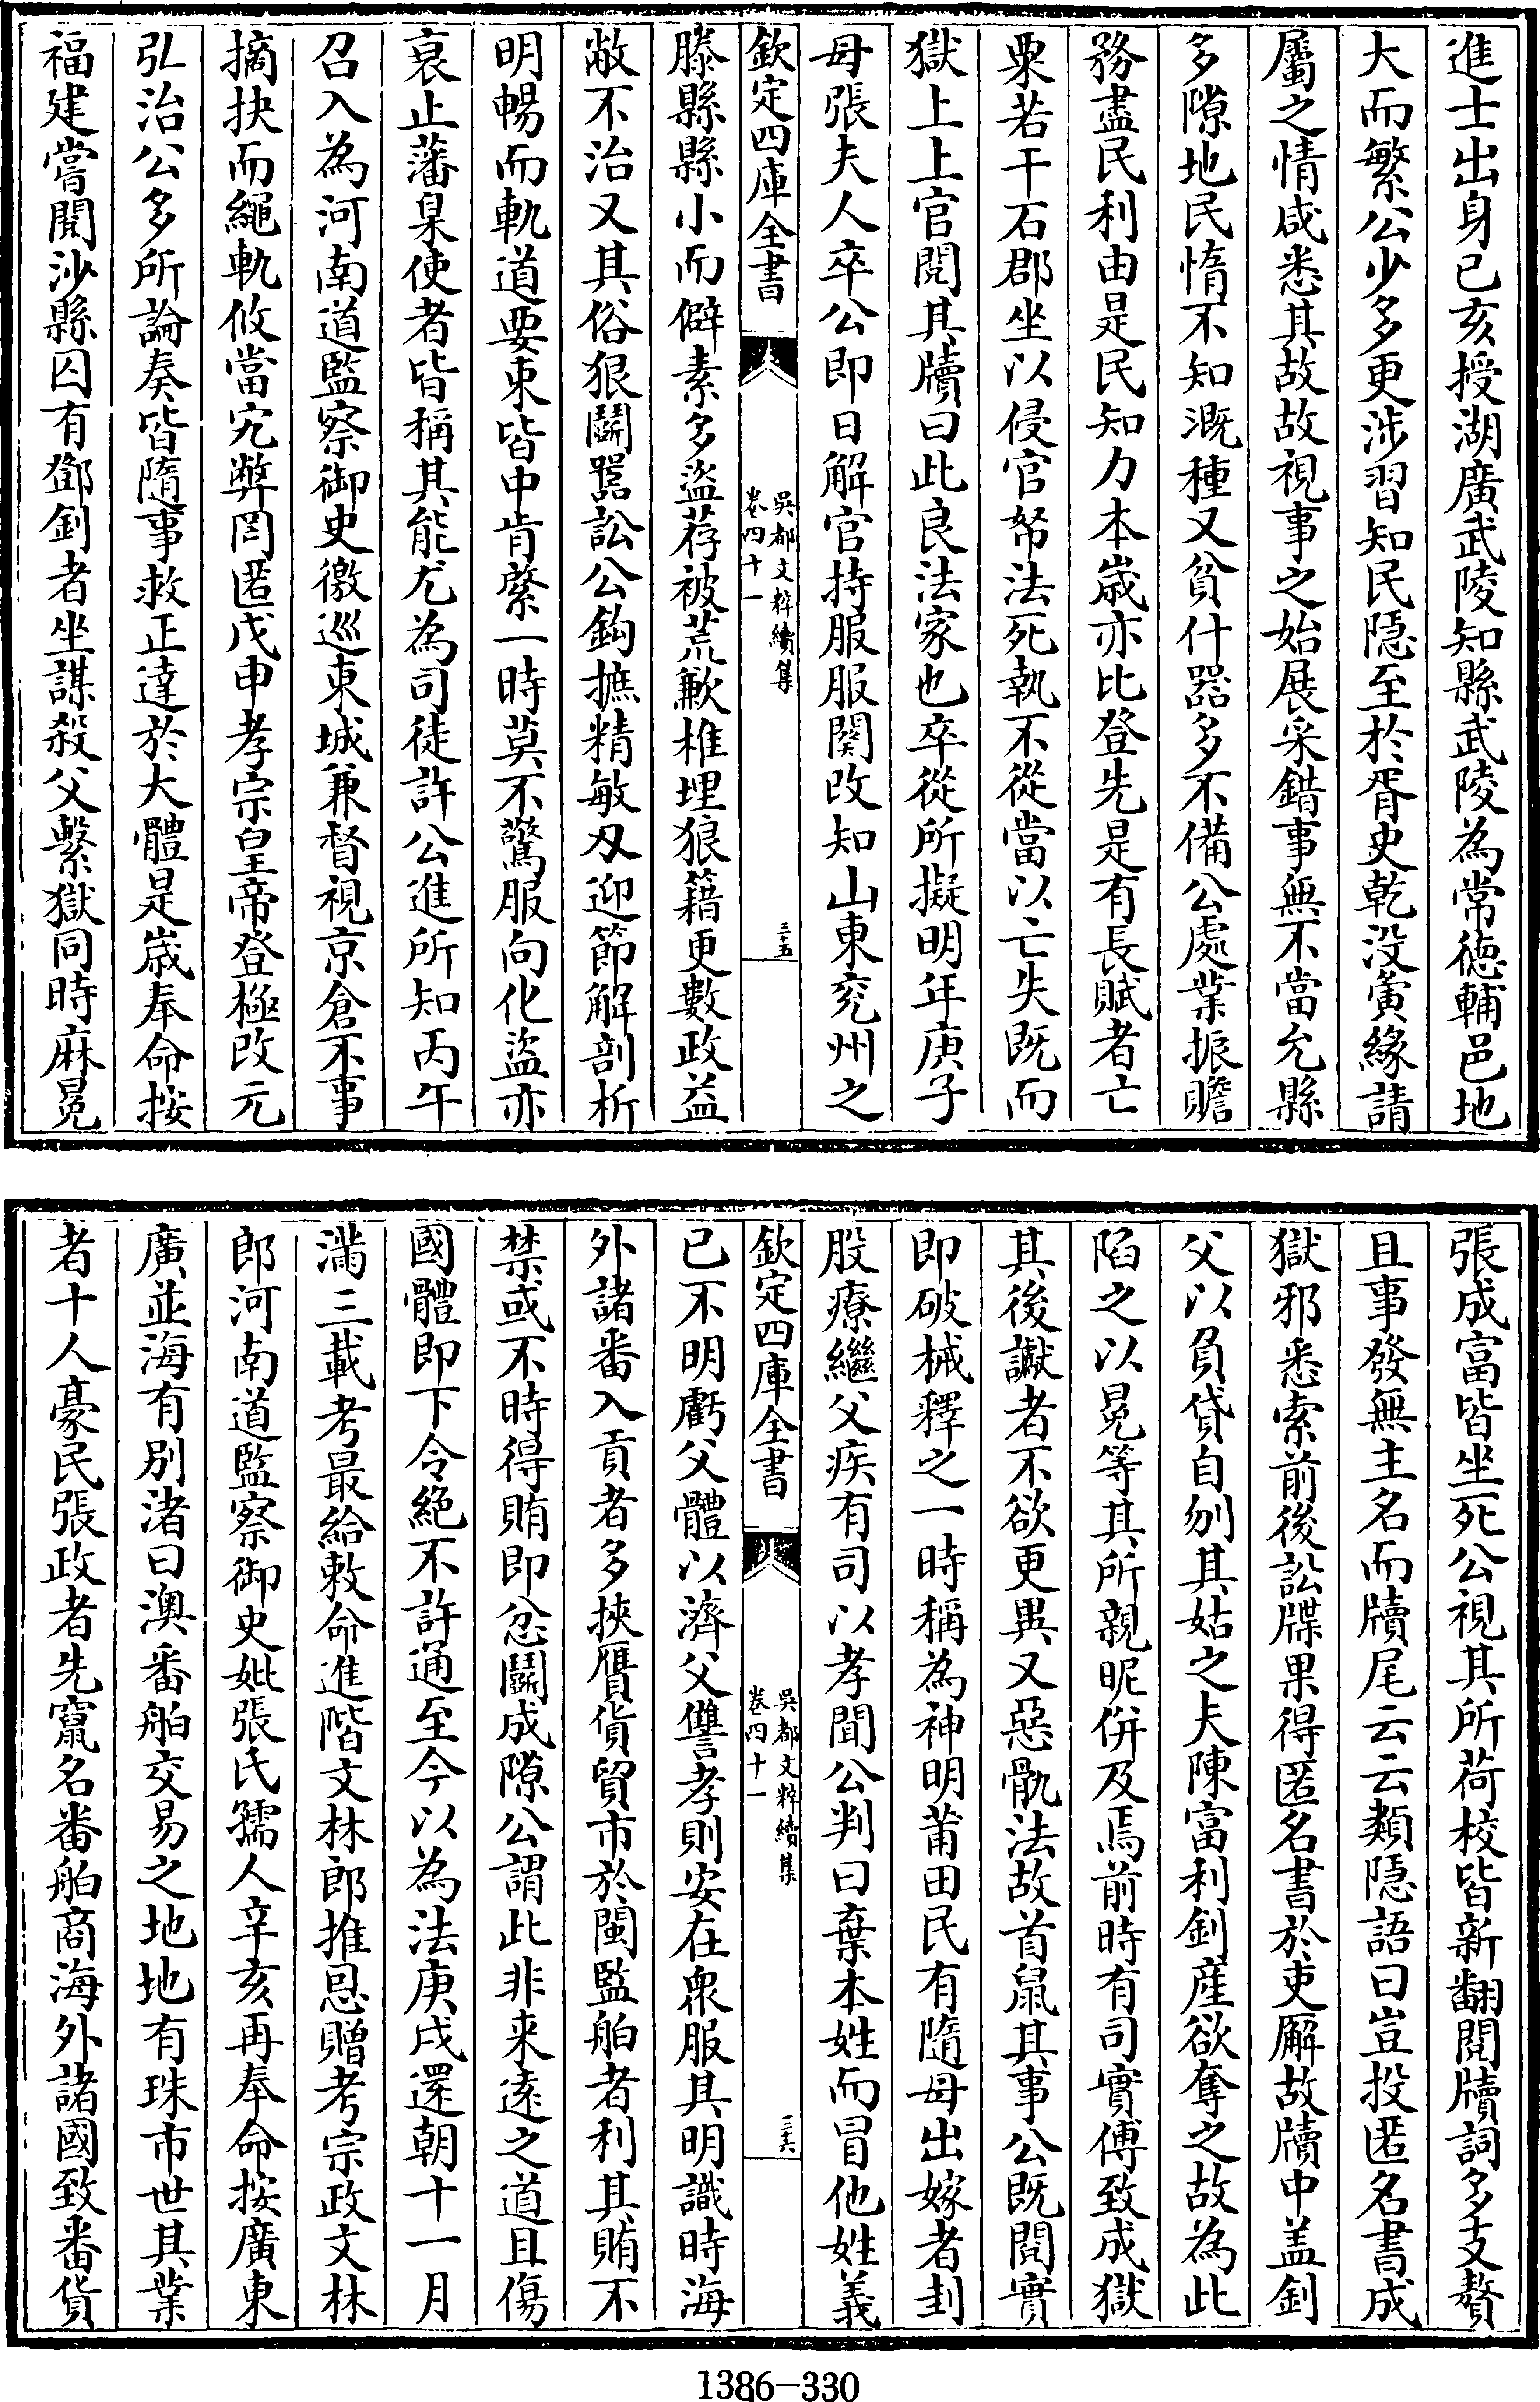 進士出身己亥授湖廣武陵知縣武陵為常德輔邑地
大而繁公少多更涉習知民隱至於胥史乾没夤緣請
屬之情咸悉其故故視事之始展采錯事無不當允縣
多隙地民惰不知溉種又貧什器多不備公處業振贍
務盡民利由是民知力本歲亦比登先是有長賦者亡
粟若干石郡坐以侵官帑法死執不從當以亡失既而
獄上上官閱其牘曰此良法家也卒從所擬明年庚子
母張夫人卒公即日解官持服服闋改知山東兖州之
欽定四庫全書
吳都文粹續集
卷四十一
三十五
滕縣縣小而僻素多盜荐被荒歉椎埋狼籍更數政益
敝不治又其俗狠鬭嚚訟公鈎摭精敏刃迎節解剖析
明暢而軌道要束皆中肯綮一時莫不驚服向化盜亦
衰止藩臬使者皆稱其能尤為司徒許公進所知丙午
召入為河南道監察御史徼巡東城兼督視京倉不事
摘抉而繩軌攸當宄弊罔匿戊申孝宗皇帝登極改元
弘治公多所論奏皆隨事救正達於大體是歲奉命按
福建嘗閱沙縣囚有鄧釗者坐謀殺父繫獄同時麻冕
張成富皆坐死公視其所荷校皆新翻閱牘詞多支贅
且事發無主名而牘尾云云類隱語曰豈投匿名書成
獄邪悉索前後訟牒果得匿名書於吏廨故牘中盖釗
父以負貸自刎其姑之夫陳富利釗産欲奪之故為此
陷之以冕等其所親昵併及焉前時有司實傅致成獄
其後讞者不欲更異又惡骫法故首鼠其事公既閱實
即破械釋之一時稱為神明莆田民有隨母出嫁者刲
股療繼父疾有司以孝聞公判曰棄本姓而冒他姓義
欽定四庫全書
吳都文粹續集
卷四十一
三十六
已不明虧父體以濟父讐孝則安在衆服其明識時海
外諸番入貢者多挾贋貨貿市於閩監舶者利其賄不
禁或不時得賄即忿鬭成隙公謂此非来逺之道且傷
國體即下令絶不許通至今以為法庚戌還朝十一月
滿三載考最給敕命進階文林郎推恩贈考宗政文林
郎河南道監察御史妣張氏孺人辛亥再奉命按廣東
廣並海有別渚曰澳番舶交易之地地有珠市世其業
者十人豪民張政者先竄名番舶商海外諸國致番貨
1386-330